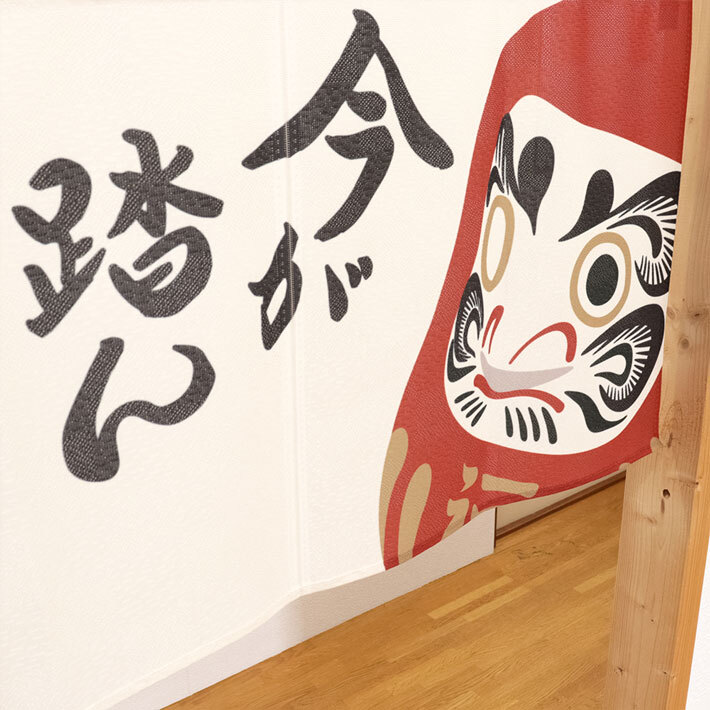 今が
踏ん